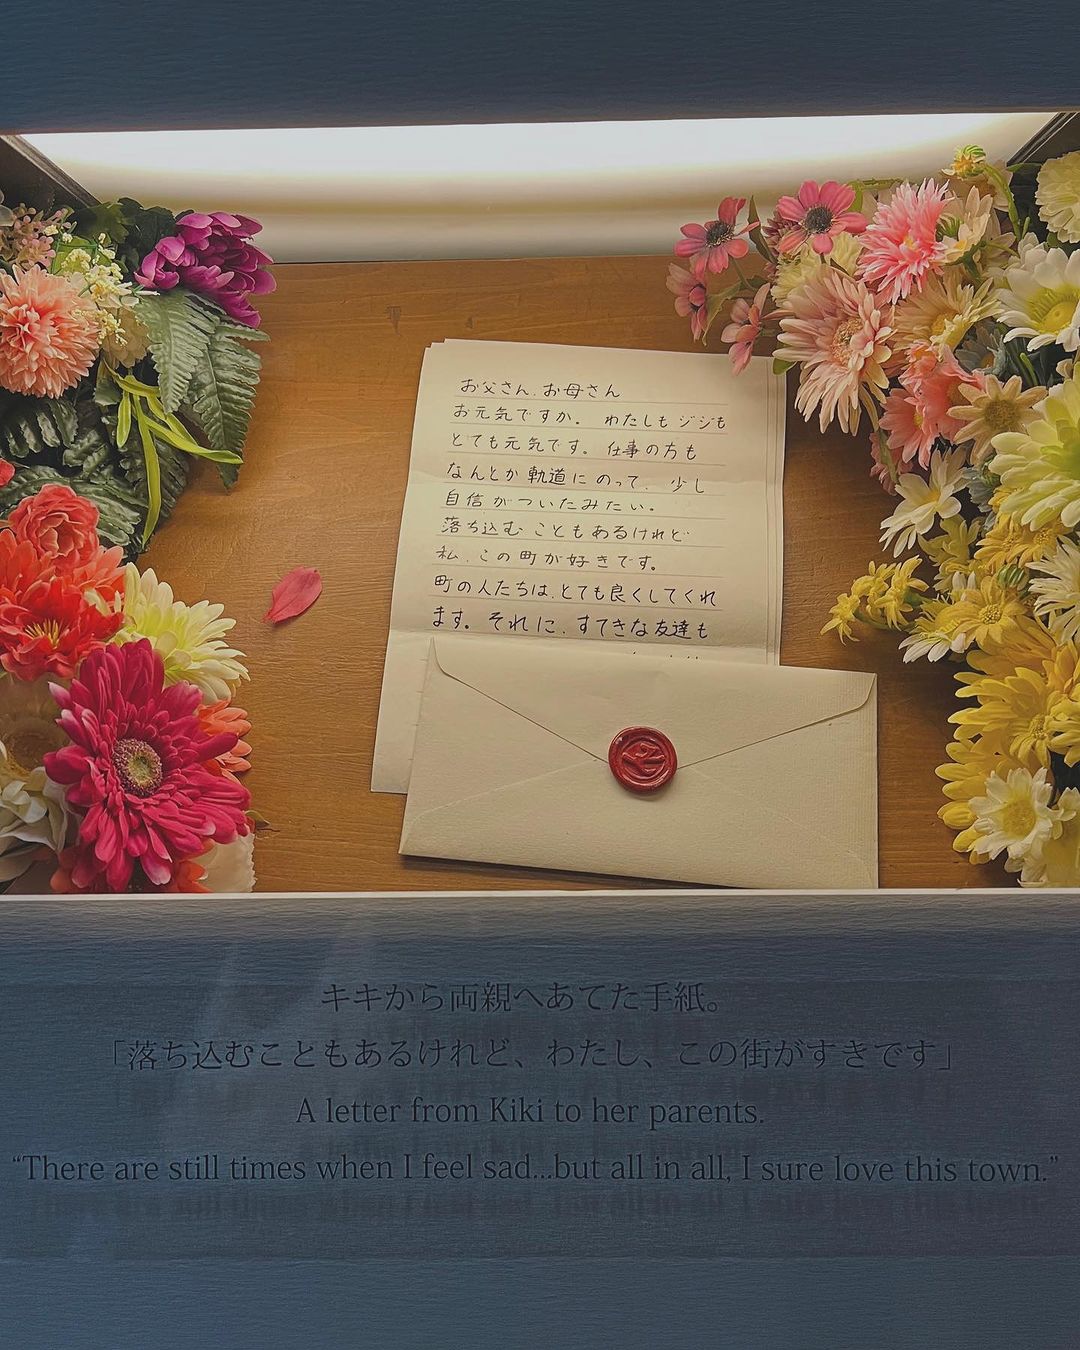 お父さん、お母さん
お元気ですか。わたしもジジも
とても元気です。仕事の方も
なんとか軌道にのって、少し
自信がついたみたい。
落ち込むこともあるけれど
私、この町が好きです。
町の人たちは、とても良くしてくれ
ます。それに、すてきな友達も
キキから両親へあてた手紙。
「落ち込むこともあるけれど、わたし、この街がすきです」
A letter from Kiki to her parents.
“There are still times when I feel sad...but all in all, I sure love this town.”